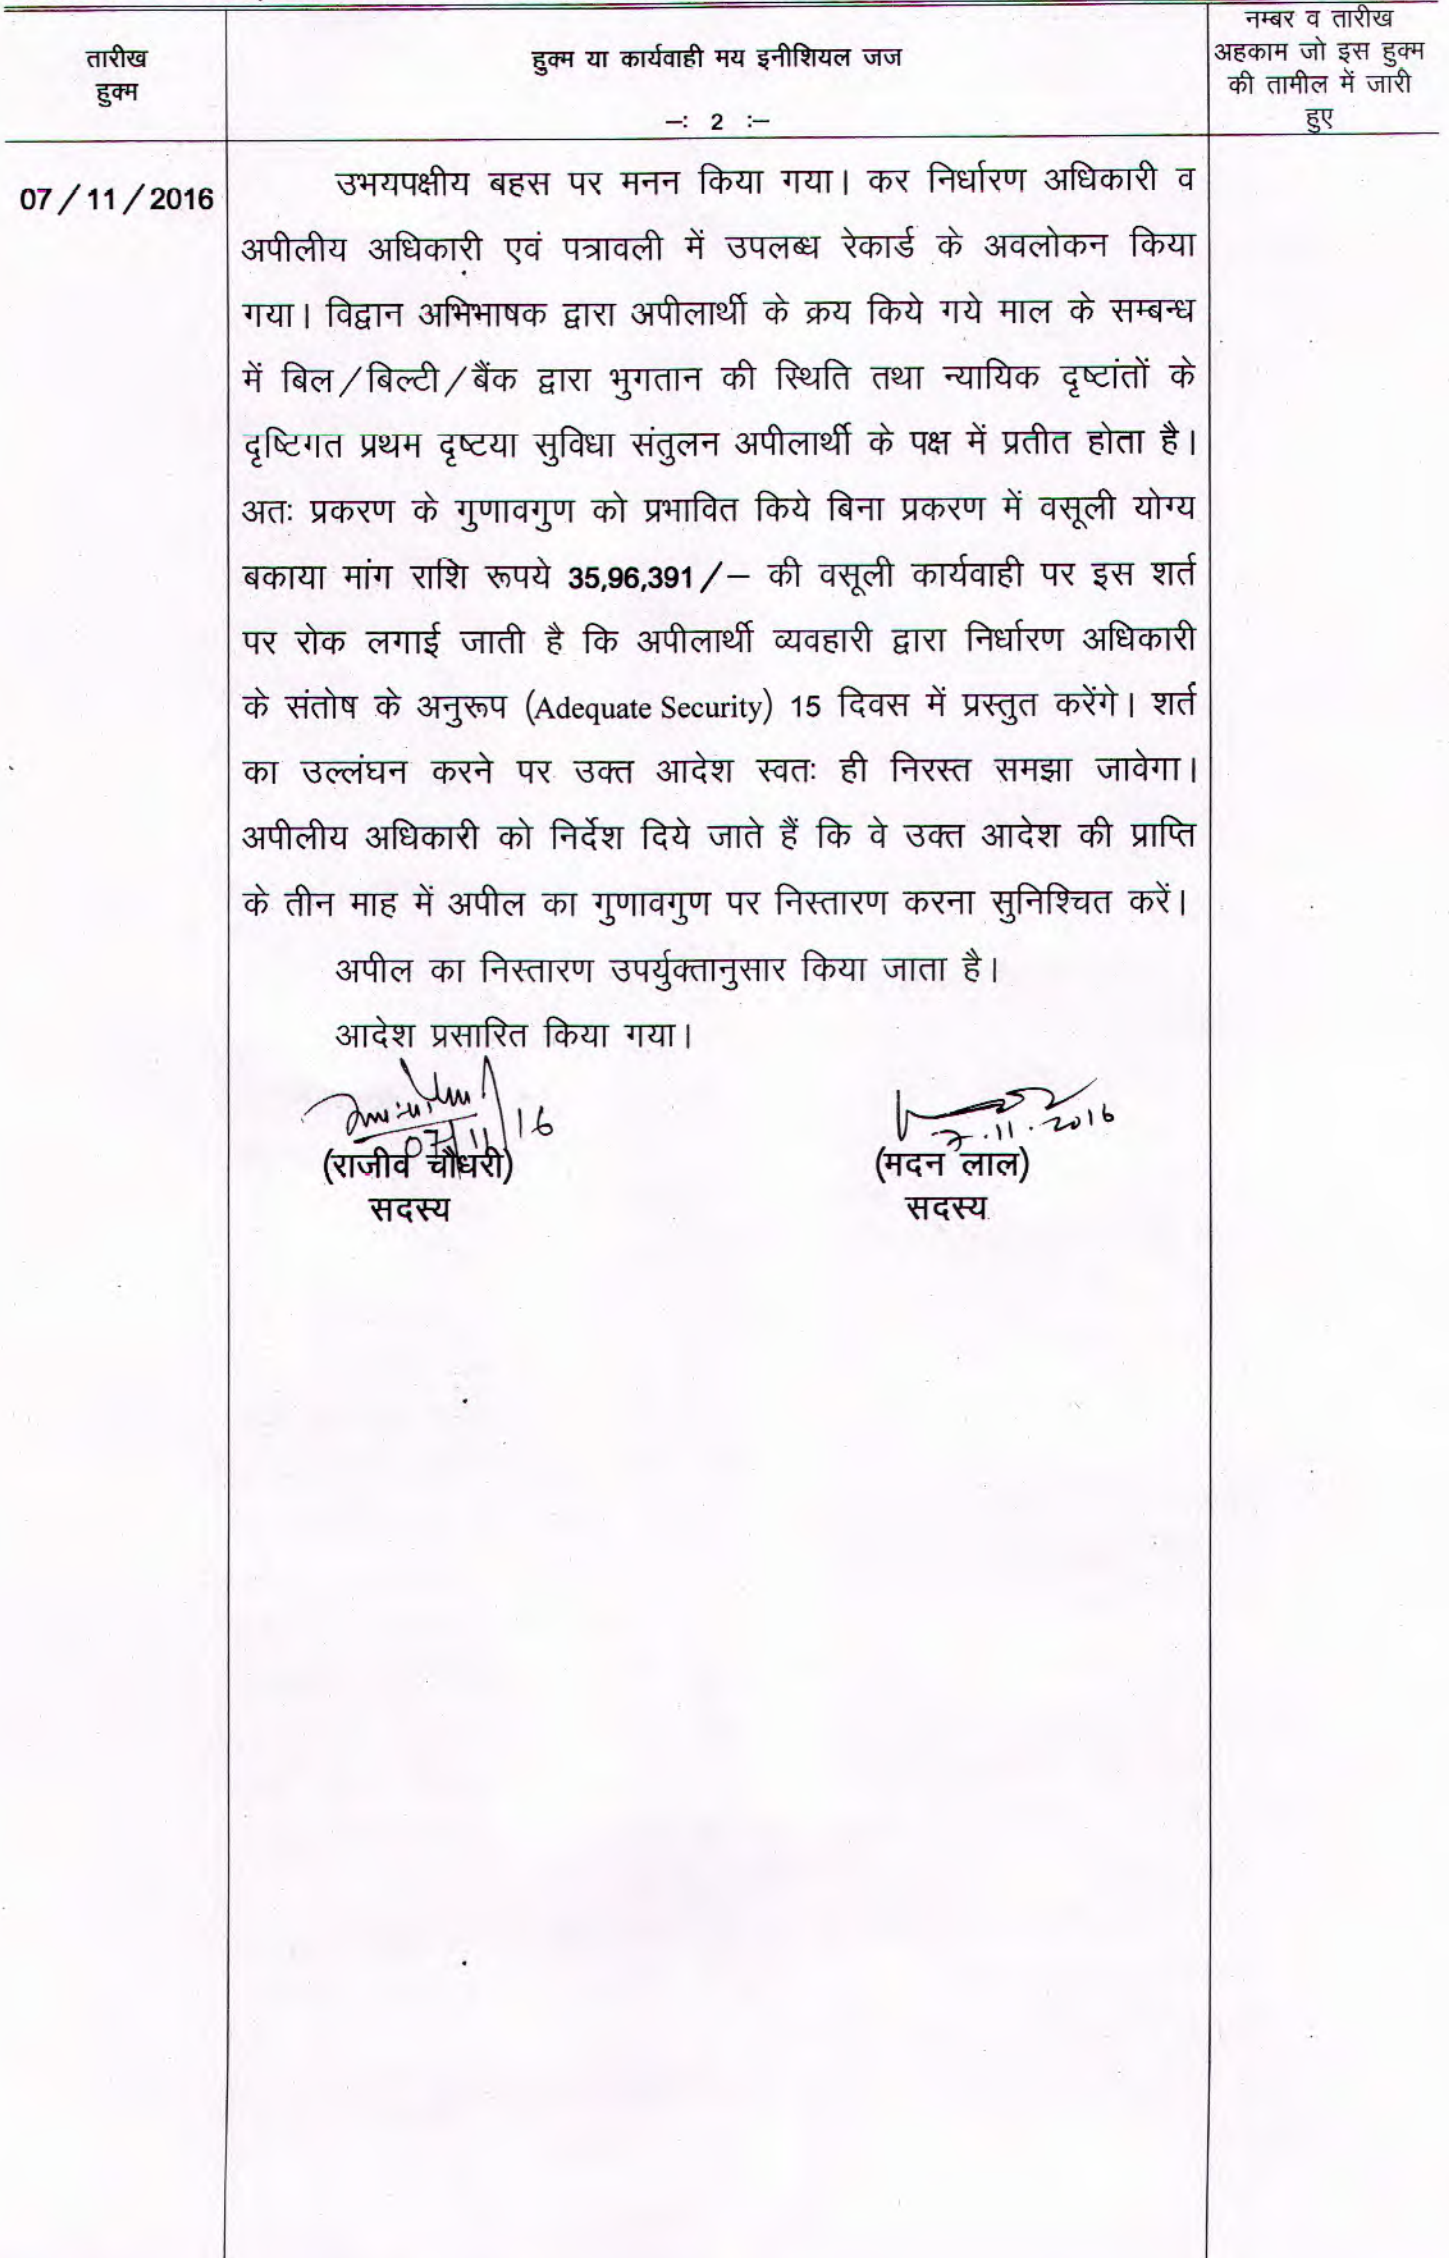 तारीख
हुक्म
हुक्म या कार्यवाही मय इनीशियल जज
–: 2 :–
नम्बर व तारीख
अहकाम जो इस हुक्म
की तामील में जारी
हुए
07/11/2016
उभयपक्षीय बहस पर मनन किया गया। कर निर्धारण अधिकारी व
अपीलीय अधिकारी एवं पत्रावली में उपलब्ध रेकार्ड के अवलोकन किया
गया। विद्वान अभिभाषक द्वारा अपीलार्थी के क्रय किये गये माल के सम्बन्ध
में बिल/बिल्टी/बैंक द्वारा भुगतान की स्थिति तथा न्यायिक दृष्टांतों के
दृष्टिगत प्रथम दृष्टया सुविधा संतुलन अपीलार्थी के पक्ष में प्रतीत होता है।
अतः प्रकरण के गुणावगुण को प्रभावित किये बिना प्रकरण में वसूली योग्य
बकाया मांग राशि रूपये 35,96,391/– की वसूली कार्यवाही पर इस शर्त
पर रोक लगाई जाती है कि अपीलार्थी व्यवहारी द्वारा निर्धारण अधिकारी
के संतोष के अनुरूप (Adequate Security) 15 दिवस में प्रस्तुत करेंगे। शर्त
का उल्लंघन करने पर उक्त आदेश स्वतः ही निरस्त समझा जावेगा।
अपीलीय अधिकारी को निर्देश दिये जाते हैं कि वे उक्त आदेश की प्राप्ति
के तीन माह में अपील का गुणावगुण पर निस्तारण करना सुनिश्चित करें।
अपील का निस्तारण उपर्युक्तानुसार किया जाता है।
आदेश प्रसारित किया गया।
07/11/16
(राजीव चौधरी)
सदस्य
7.11.2016
(मदन लाल)
सदस्य